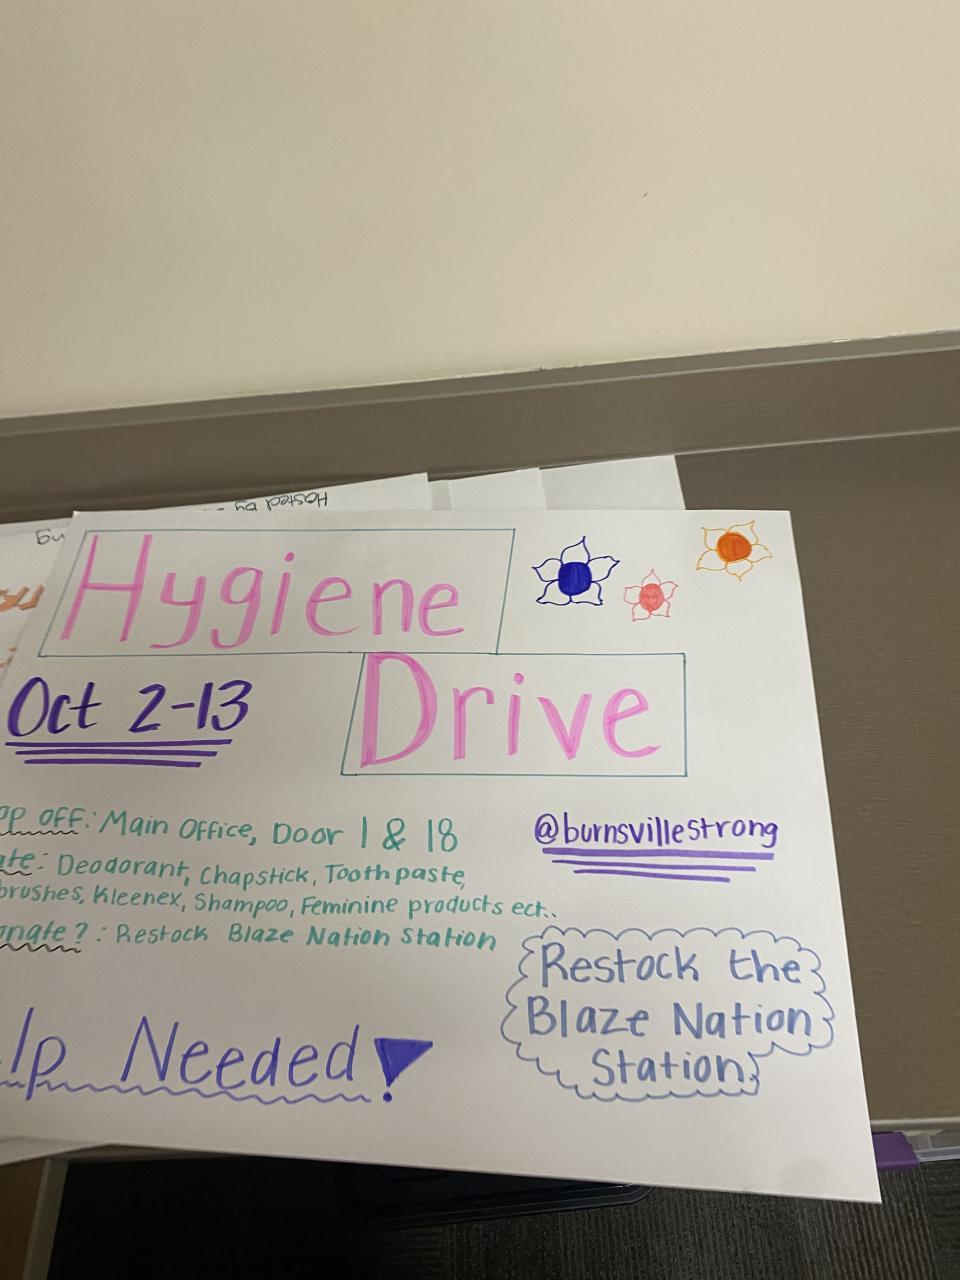 Hosted by
Hygiene
Drive
Oct 2-13
op off: Main Office, Door 1 & 18
@burnsvillestrong
ate: Deodorant, Chapstick, Toothpaste,
brushes, Kleenex, Shampoo, Feminine products ect..
onate? : Restock Blaze Nation Station
Restock the
Blaze Nation
Station
lp Needed!